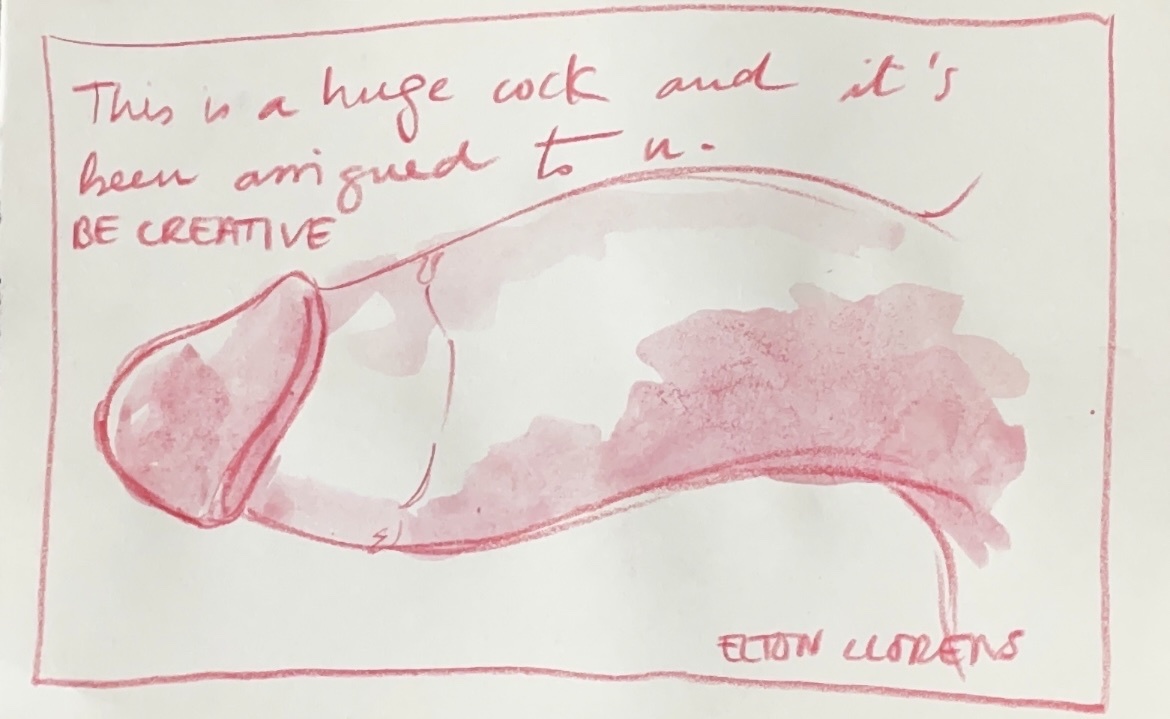 This is a huge cock and it's
been assigned to u.
BE CREATIVE
ELTON LLORENS